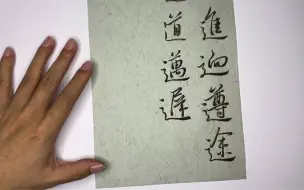 進逈遵途
道邁遲